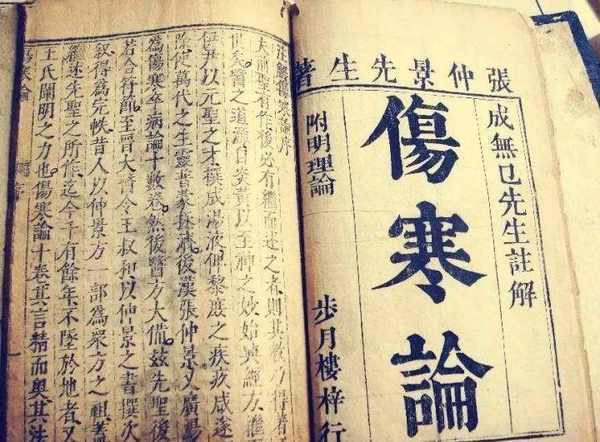 張仲景先生著
成無已先生註解
傷寒論
附明理論
步月樓梓行
註解傷寒論序
夫前聖有作後必有繼而述之者則其教乃得著
矣醫之道源自炎黃以至神之妙始興經方
伊尹以元聖之才撰成湯液俾黎庶之疾疚咸遂
除使萬代之生靈普蒙拯濟後漢張仲景又廣湯
為傷寒卒病論十數卷然後醫方大備茲先聖後
若合符節至晉太醫令王叔和以仲景之書撰次
叙得為完帙昔人以仲景方一部為眾方之祖蓋
繼述先聖之所作迄今千有餘年不墜於地者又
王氏闡明之力也傷寒論十卷其言精而奧其法
傷寒論 序